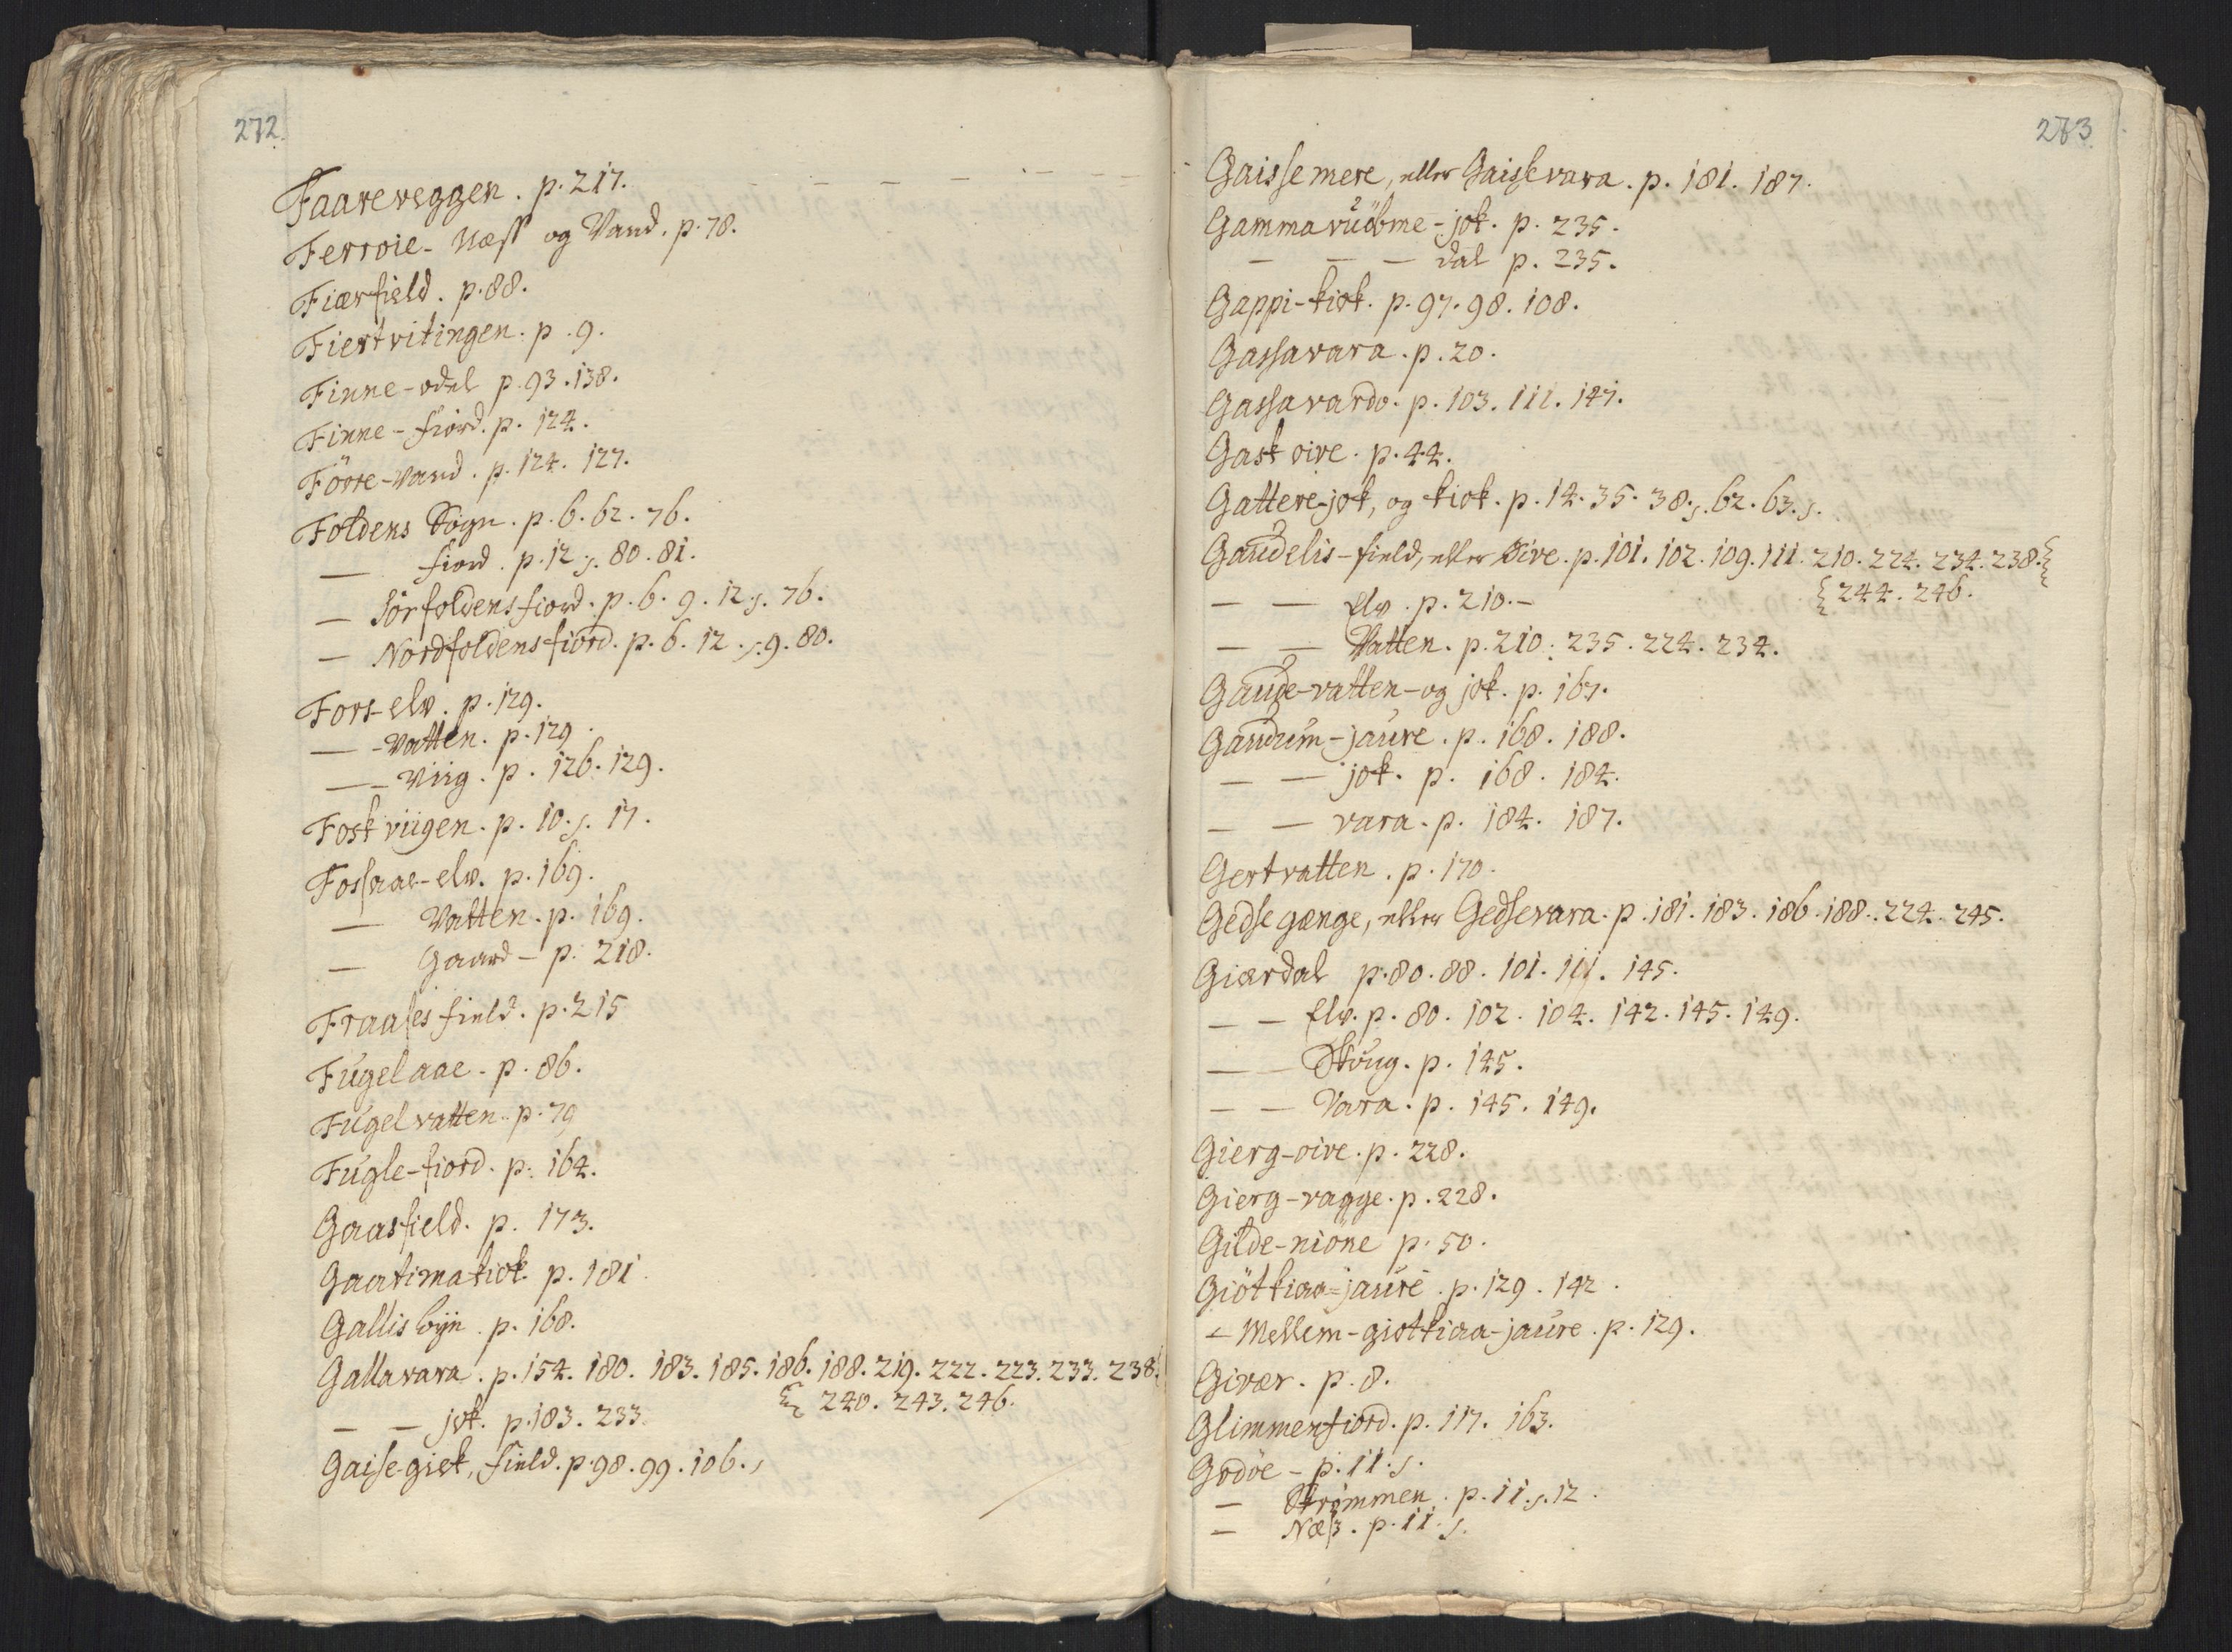 272.
Faareveggen. p. 217.
Ferroie-Næss og Vand. p. 78.
Fiærfield. p. 88.
Fiertvitingen. p. 9.
Finne-odal p. 93. 138.
Finne-fiord. p. 124.
Förre-Vand. p. 124. 127.
Foldens Sogn. p. 6. 62. 76.
— fiord. p. 12 s. 80. 81.
— Sörfoldensfiord. p. 6. 9. 12. s. 76.
— Nordfoldensfiord. p. 6. 12. s. 9. 80.
Fors-elv. p. 129.
— - Vatten. p. 129.
— - Viig. p. 126. 129.
Foskviigen. p. 10. s. 17.
Fossaae-elv. p. 169.
— Vatten. p. 169.
— Gaard - p. 218.
Fraases field. p. 215
Fugelaae. p. 86.
Fugelvatten. p. 79
Fugle-fiord. p. 164.
Gaasfield. p. 173.
Gaatimakiok p. 181.
Gallisbyn. p. 168.
Gallavara. p. 154. 180. 183. 185. 186. 188. 219. 222. 223. 233. 238.
240. 243. 246.
— — jok. p. 183. 233.
Gaise-giek, field. p. 98. 99. 106. s
273.
Gaissemere, eller Gaissevara. p. 181. 187.
Gammavuobme-jok. p. 235.
— — — dal p. 235.
Gappi-kiok. p. 97. 98. 108.
Gassavara. p. 20.
Gassavardo. p. 103. 111. 147.
Gaskoive. p. 44.
Gatterejok, og kiok. p. 14. 35. 38. s. 62. 63. s.
Gaudelis-field, eller Oive. p. 101. 102. 109. 111. 210. 224. 234. 238.
244. 246.
— — Elv. p. 210. -
— — Vatten. p. 210. 235. 224. 234.
Gaude-vatten-og jok. p. 167.
Gaudum-jaure. p. 168. 188.
— — jok. p. 168. 184.
— — vara. p. 184. 187.
Gertvatten. p. 170.
Gedsegænge, eller Gedsevara. p. 181. 183. 186. 188. 224. 245.
Giærdal p. 80. 88. 101. 111. 145.
— — Elv. p. 80. 102. 104. 142. 145. 149.
— — Skoug. p. 145.
— — Vara. p. 145. 149.
Gierg-oive. p. 228.
Gierg-vagge. p. 228.
Gilde-nione p. 50.
Giötkiaa-jaure. p. 129. 142.
- Mellem-giotkiaa-jaure. p. 129.
Givær. p. 8.
Glimmenfiord. p. 117. 163.
Godöe - p. 11. s.
— Strömmen. p. 11. s. 12.
— Næss. p. 11. s.